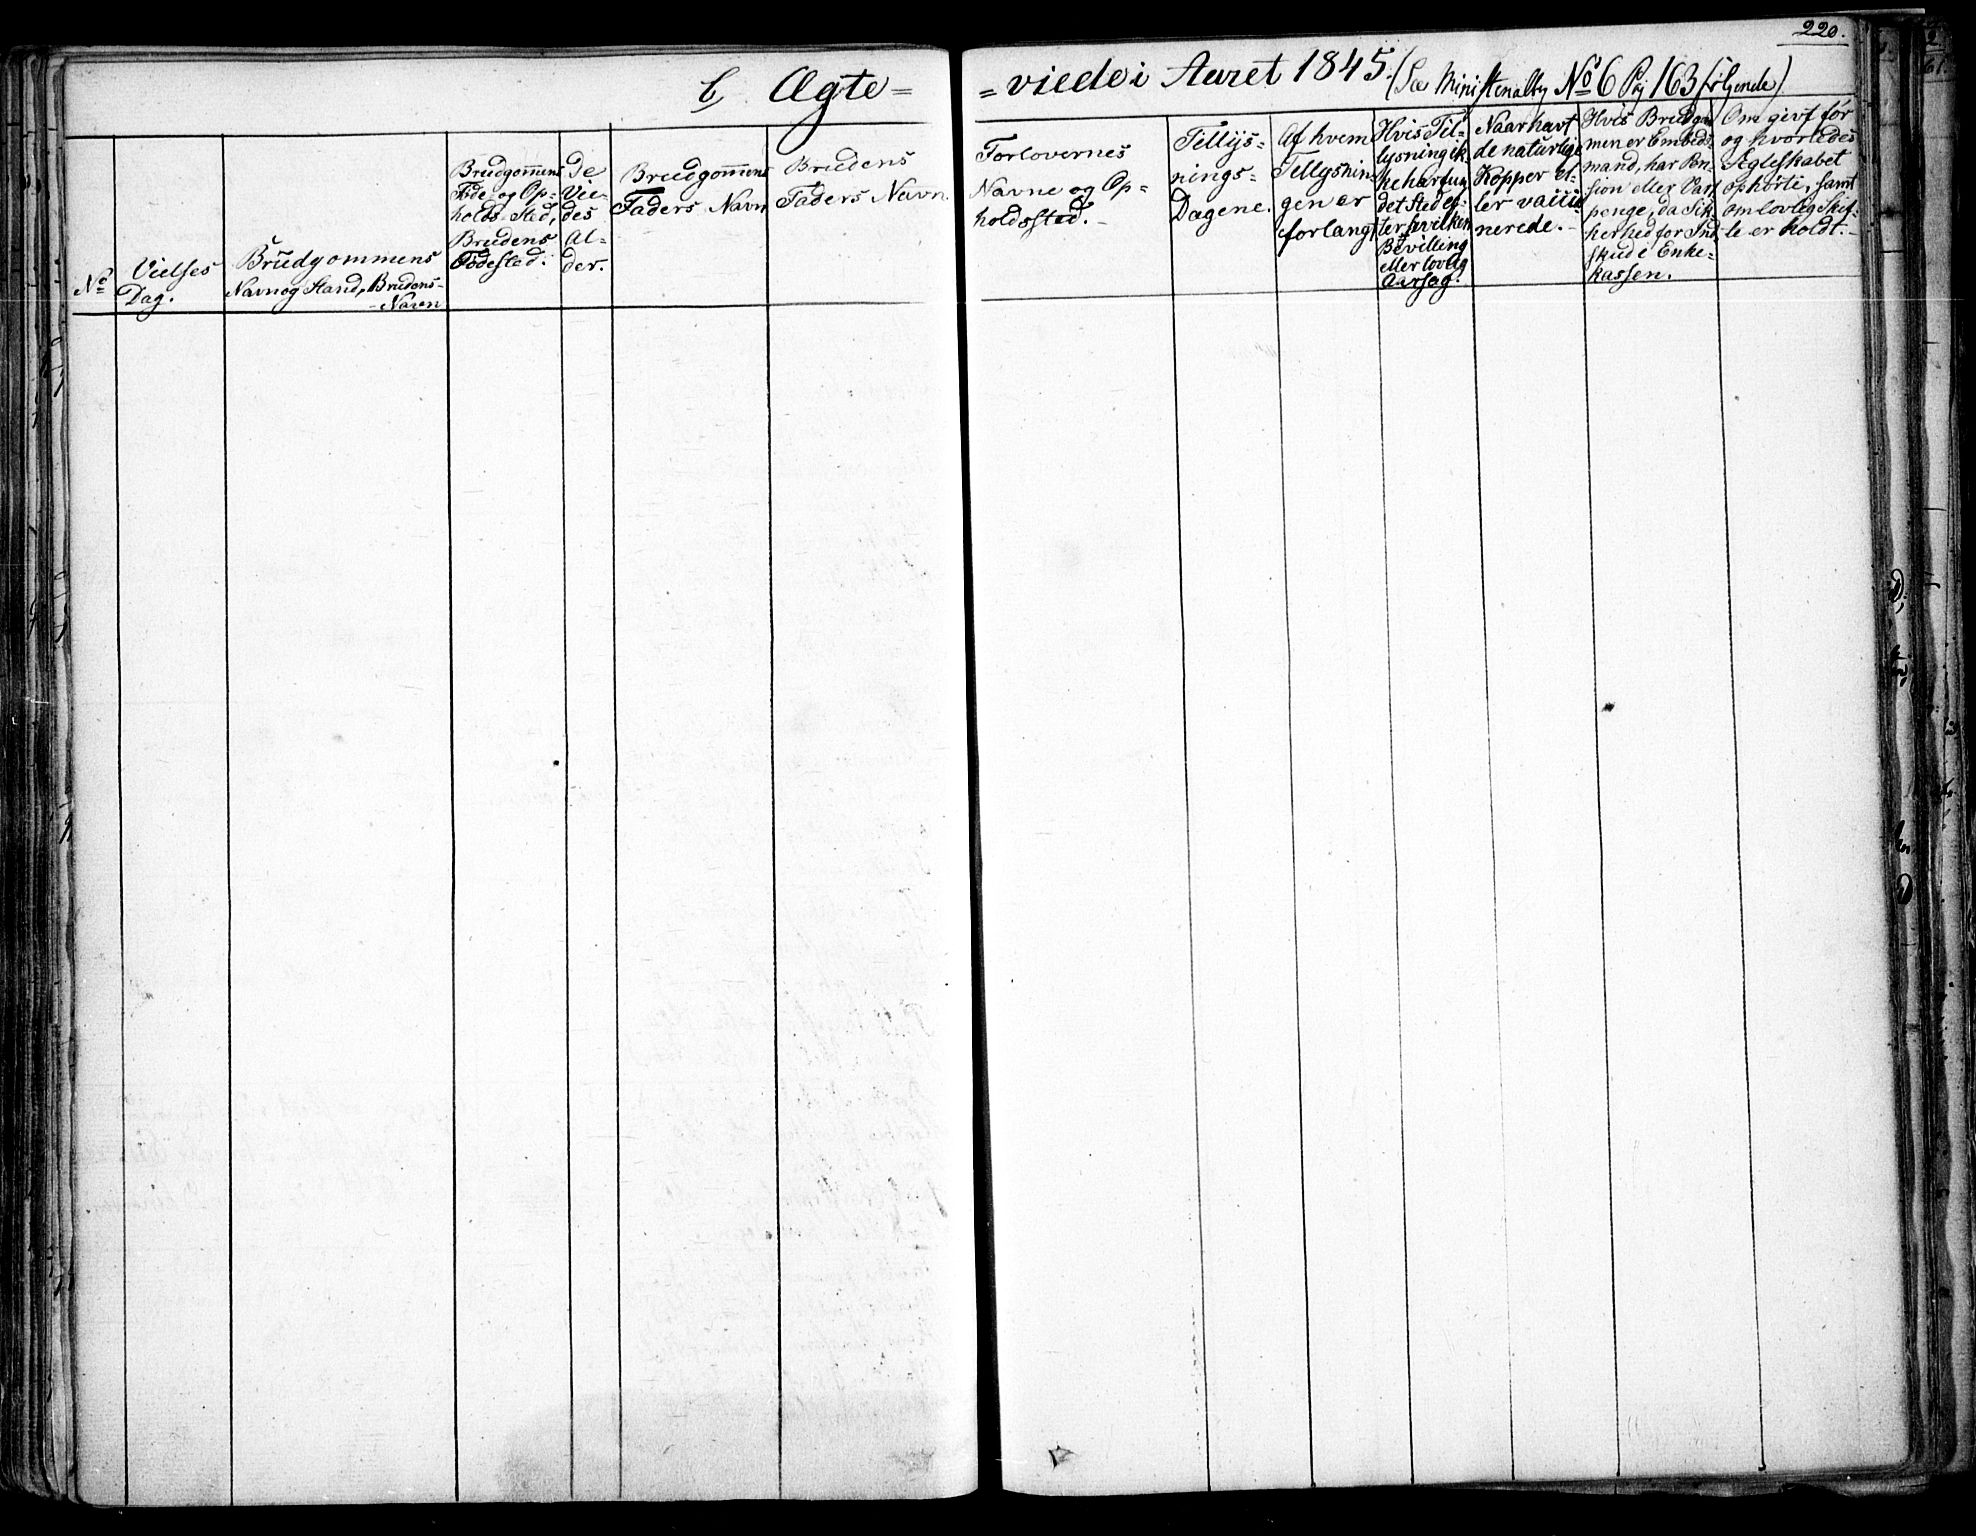 220.
b, Ægte=
=viede i Aaret 1845. (See Ministerialbog No 6 Pag 163 følgende)
No
Vielses
Dag.
Brudgommens
Navn og Stand, Brudens
- Navn
Brudgommens
Føde og Op=
holds Sted,
Brudens
Fødested.
De
Vie=
des
Al=
der.
Brudgommens
Faders Navn
Brudens
Faders Navn.
Forlovernes
Navne og Op=
holdssted. -
Tillys=
nings=
Dagene.
Af hvem
Tillysnin=
gen er
forlangt
Hvis Til=
lysning ik=
ke har fun
det Sted ef=
ter hvilken
Bevilling
eller lovlig
Aarsag.
Naar havt
de naturlige
Kopper el=
ler vacci=
nerede. -
Hvis Brudgom
men er Embeds
mand, har Pen
sion eller Vart
penge, da Sik=
kerhed for Ind
skud i Enke=
kassen.
Om givt før
og hvorledes
Ægteskabet
ophørte, samt
om lovlig Skif=
te er holdt. -